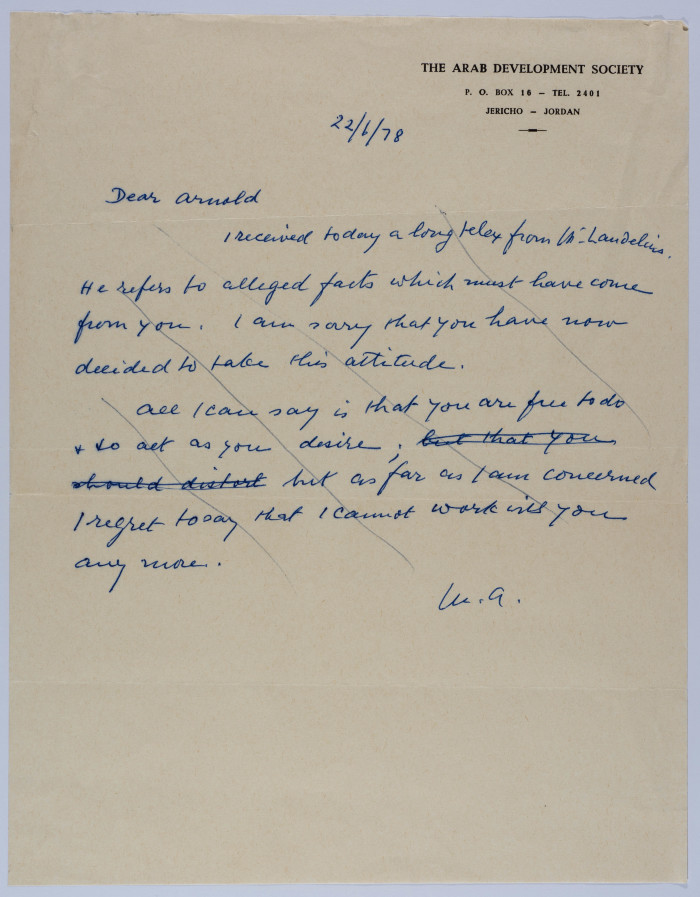 THE ARAB DEVELOPMENT SOCIETY
P. O. BOX 16 – TEL. 2401
JERICHO – JORDAN
22/6/78
Dear Arnold
I received today a long telex from Mr Landelius.
He refers to alleged facts which must have come
from you. I am sorry that you have now
decided to take this attitude.
All I can say is that you are free to do
& to act as you desire; but that you
should distort but as far as I am concerned
I regret to say that I cannot work with you
any more.
M.A.